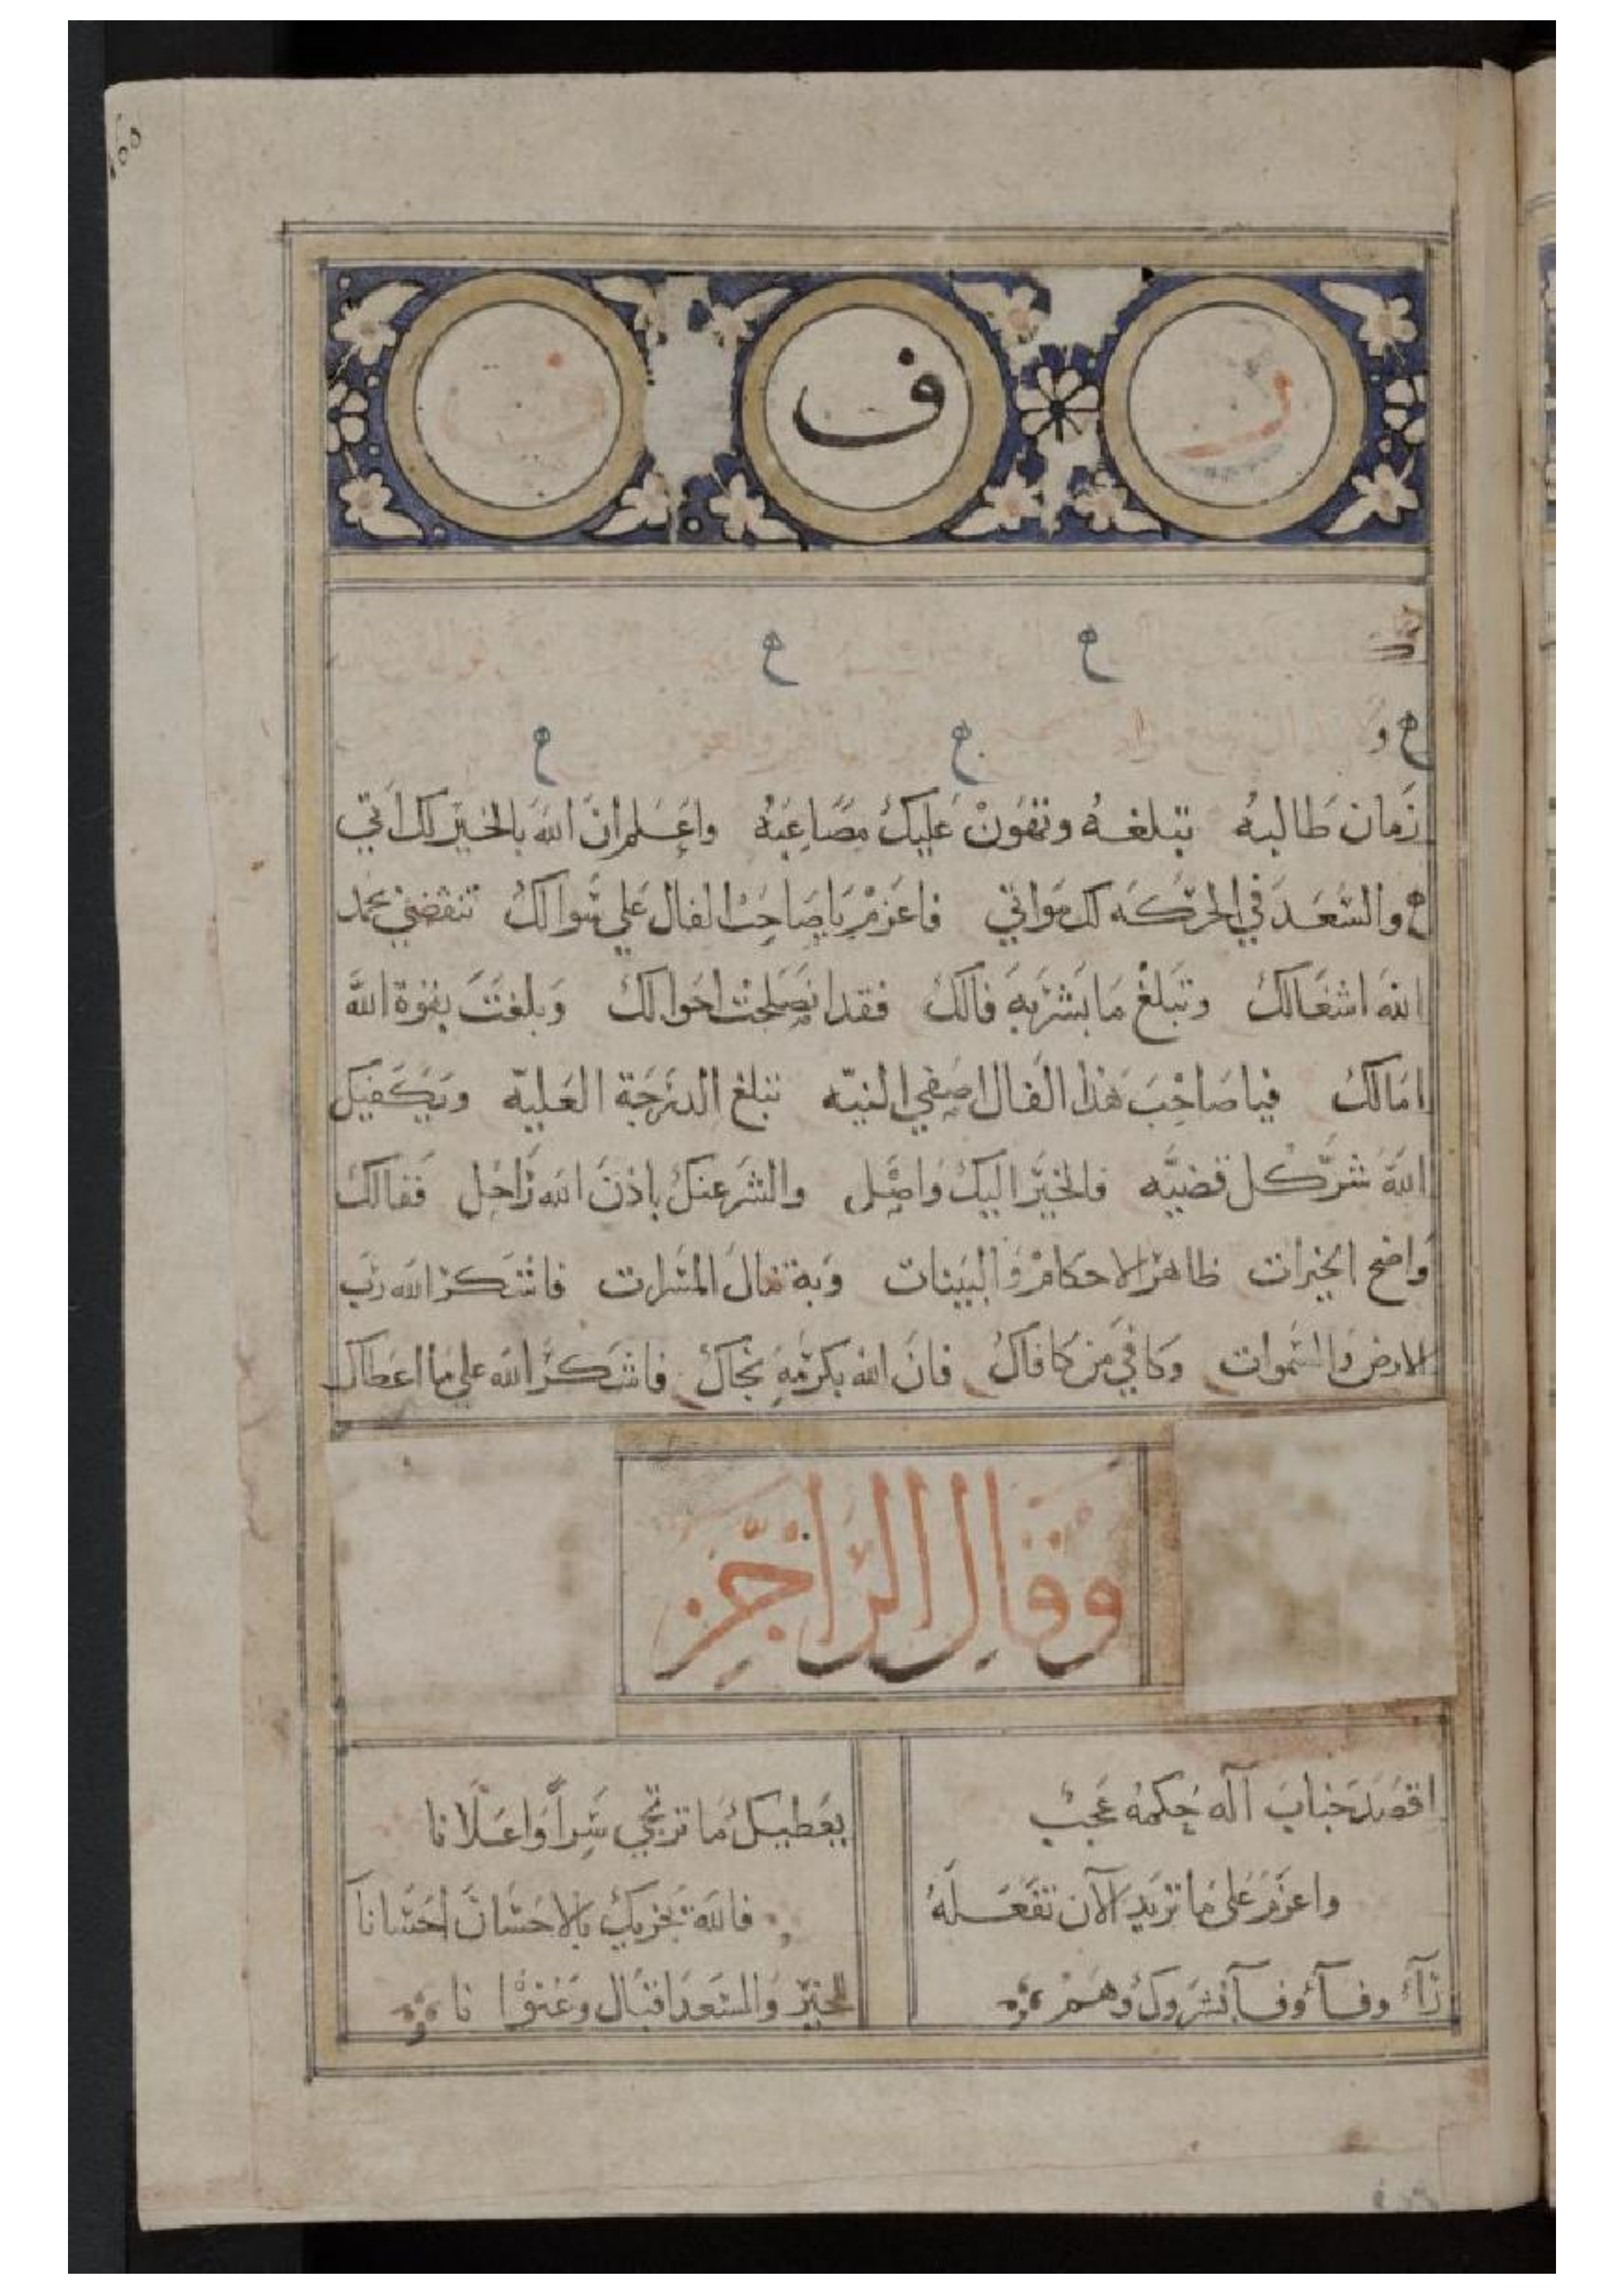 ف ف ف
ح ح
ح و ح ح
زمان طالبه تبلغه وتهون عليك مصاعبه واعلم ان الله بالخير لك اتي
ح والسعد في الحركه لك مواتي فاعزم يا صاحب الفال علي سوالك تنقضي بحمد
الله اشغالك وتبلغ ما بشر به فالك فقد انصلحت احوالك وبلغت بقوة الله
امالك فيا صاحب هذا الفال اصفي النيه تبلغ الدرجة العليه ويكفيك
الله شر كل قضيه فالخير اليك واصل والشر عنك باذن الله راحل ففالك
واضح الخيرات ظاهر الاحكام والبينات وبه تنال المسرات فاشكر الله رب
الارض والسموات وكافي من كافاك فان الله بكرمه نجاك فاشكر الله علي ما اعطاك
وقال الراجز
اقصد جناب اله حكمه عجب يعطيك ما ترتجي سرا واعلانا
واعزم على ما تريد الآن تفعله فالله يجزيك بالاحسان احسانا
رآء وفآء وفآ تشروك وهم الخير والسعد اقبال وعنوا نا